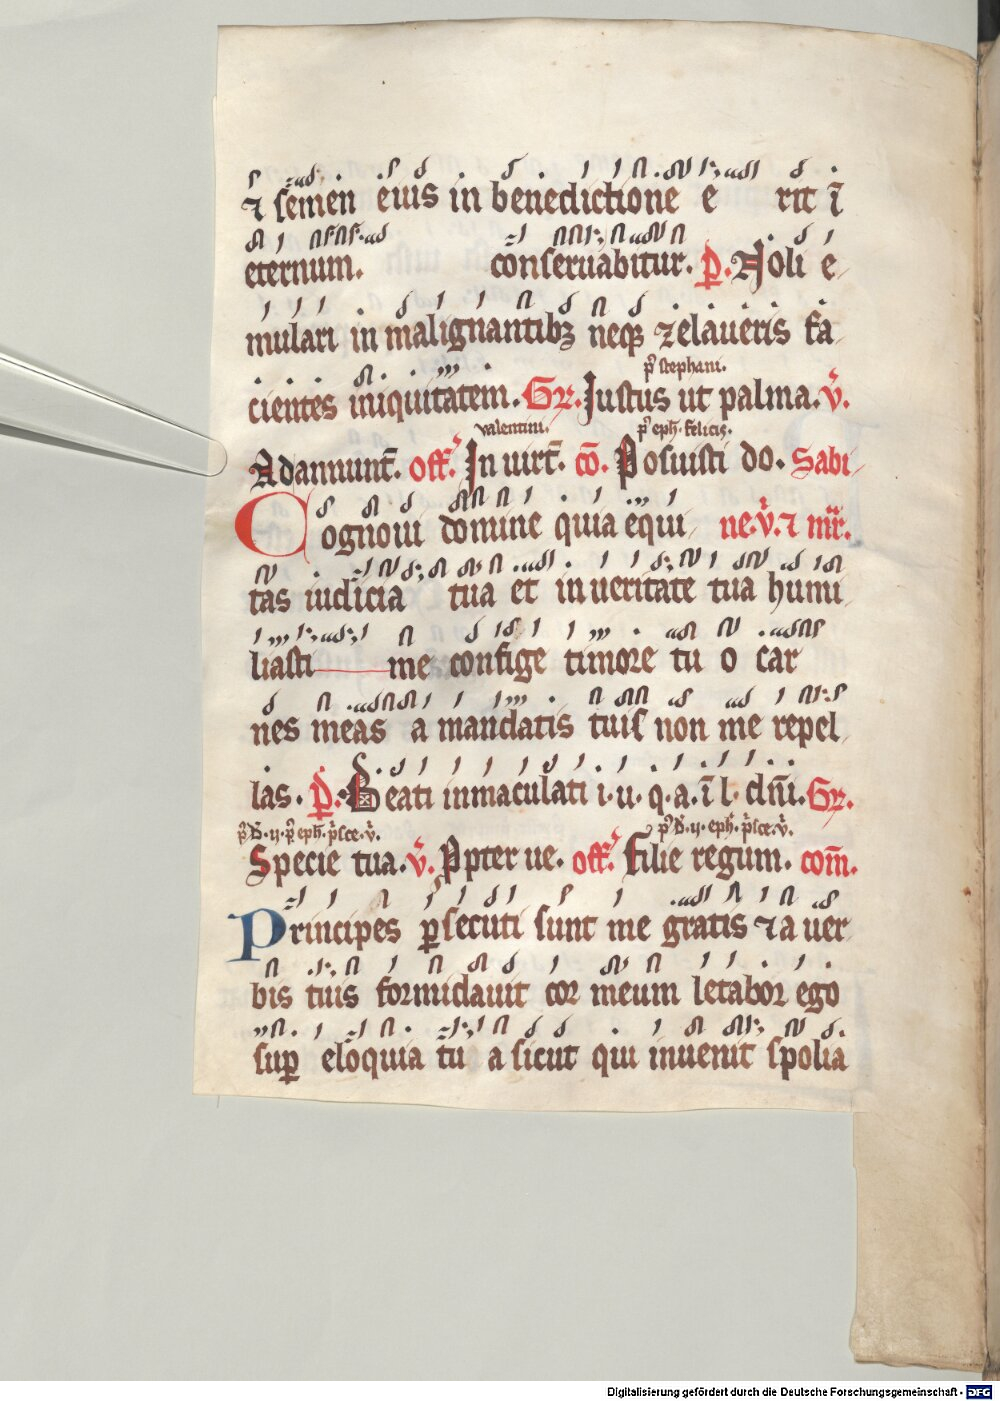 ⁊ semen eius in benedictione e rit ī
eternum. conseruabitur. p̄. Noli e
mulari in malignantibꝫ neqꝫ zelaueris fa
p͛ stephani.
cientes iniquitatem. Gr. Iustus ut palma. v̄.
valentini. p͛ eph. felicis.
Adannunt̄. off. In uirt̄. cō. Posuisti do. Sabi
Cognoui domine quia equi ne. v̄. ⁊ mr̄.
tas iudicia tua et in ueritate tua humi
liasti me confige timore tu o car
nes meas a mandatis tuis non me repel
las. p̄. Beati inmaculati i. u. q. a. ī l. dn̄i. Gr.
Specie tua. v̄. Ꝓpter ue. off. Filie regum. com̄.
Principes ꝑsecuti sunt me gratis ⁊ a uer
bis tuis formidauit cor meum letabor ego
suꝑ eloquia tu a sicut qui inuenit spolia
Digitalisierung gefördert durch die Deutsche Forschungsgemeinschaft - DFG